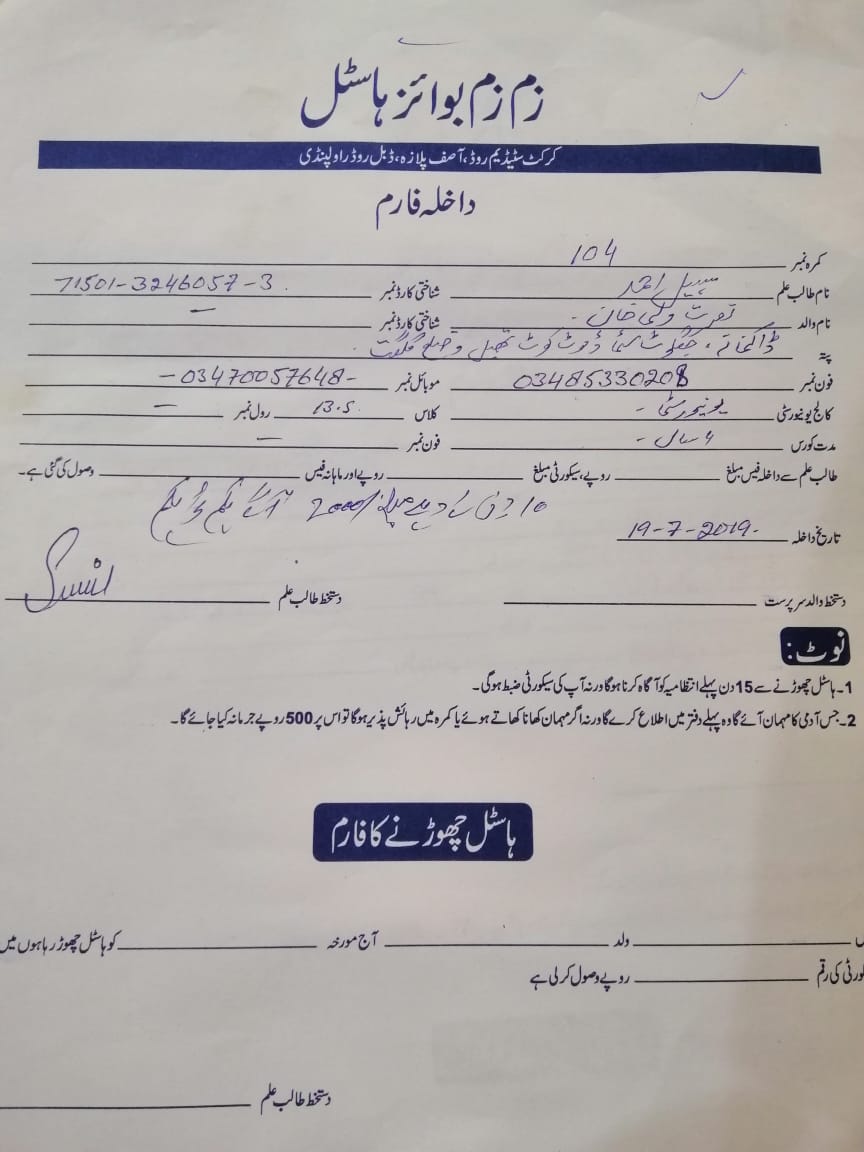 زم زم بوائز ہاسٹل
کرکٹ سٹیڈیم روڈ، آصف پلازہ، ڈبل روڈ راولپنڈی
داخلہ فارم
کمرہ نمبر 104
نام طالب علم سہیل احمد شناختی کارڈ نمبر 71501-3246057-3
نام والد نصرت ولی خان شناختی کارڈ نمبر -
پتہ ڈاکخانہ، جگلوٹ کوٹ تحصیل و ضلع گلگت
فون نمبر 03485330208 موبائل نمبر -03470057648-
کالج یونیورسٹی یونیورسٹی - کلاس B.S رول نمبر -
مدت کورس 4 سال - فون نمبر -
طالب علم سے داخلہ فیس مبلغ روپے، سیکورٹی مبلغ روپے اور ماہانہ فیس وصول کی گئی ہے۔
10 دن کے 2000/ یکم یکم
تاریخ داخلہ 19-7-2019-
دستخط والد سرپرست دستخط طالب علم
نوٹ:
1۔ ہاسٹل چھوڑنے سے 15 دن پہلے انتظامیہ کو آگاہ کرنا ہوگا ورنہ آپ کی سیکورٹی ضبط ہوگی۔
2۔ جس آدمی کا مہمان آئے گا وہ پہلے دفتر میں اطلاع کرے گا ورنہ اگر مہمان کھانا کھاتے ہوئے یا کمرہ میں رہائش پذیر ہوگا تو اس پر 500 روپے جرمانہ کیا جائے گا۔
ہاسٹل چھوڑنے کا فارم
ولد آج مورخہ کو ہاسٹل چھوڑ رہا ہوں میں
کی رقم روپے وصول کر لی ہے
دستخط طالب علم